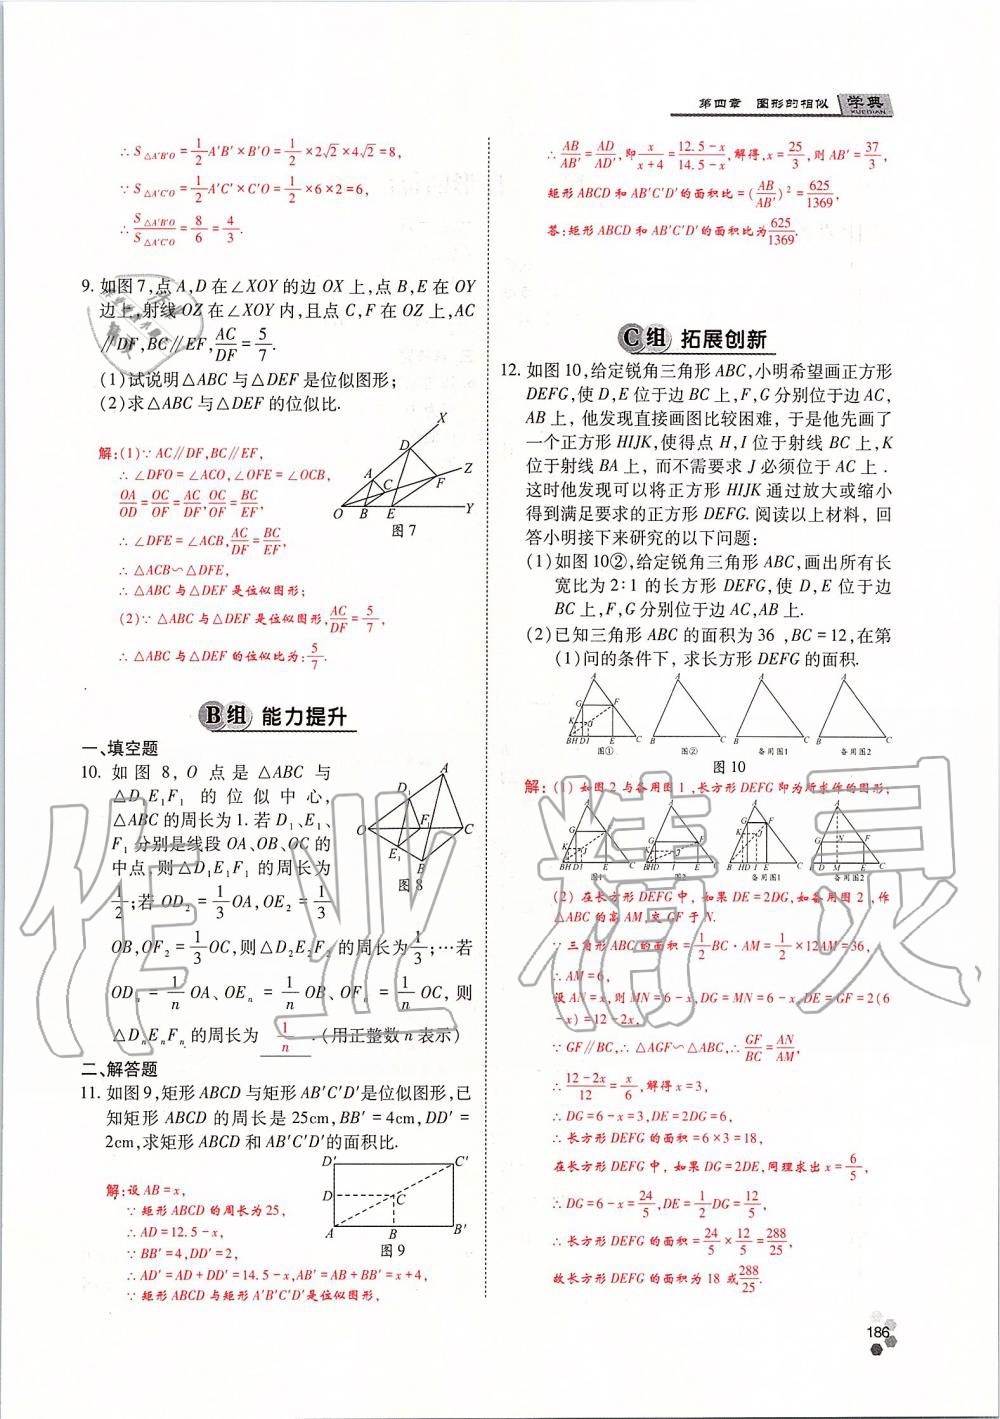 第四章　图形的相似　学典
XUEDIAN
∴ S△A'B'O = 1/2 A'B' × B'O = 1/2 × 2√2 × 4√2 = 8,
∵ S△A'C'O = 1/2 A'C' × C'O = 1/2 × 6 × 2 = 6,
∴ S△A'B'O/S△A'C'O = 8/6 = 4/3.
9. 如图7,点A,D在∠XOY的边OX上,点B,E在OY
边上,射线OZ在∠XOY内,且点C,F在OZ上,AC
∥DF,BC∥EF,AC/DF = 5/7.
(1)试说明△ABC与△DEF是位似图形;
(2)求△ABC与△DEF的位似比.
解:(1)∵AC∥DF,BC∥EF,
∴∠DFO=∠ACO,∠OFE=∠OCB,
OA/OD = OC/OF = AC/DF, OC/OF = BC/EF,
∴∠DFE=∠ACB, AC/DF = BC/EF,
∴△ACB∽△DFE,
∴△ABC与△DEF是位似图形;
(2)∵△ABC与△DEF是位似图形, AC/DF = 5/7,
∴△ABC与△DEF的位似比为:5/7.
X
D
Z
A
C
F
O B E Y
图7
B组 能力提升
一、填空题
10. 如图8,O点是△ABC与
△D₁E₁F₁的位似中心,
△ABC的周长为1.若D₁、E₁、
F₁分别是线段OA、OB、OC的
中点,则△D₁E₁F₁的周长为
1/2;若OD₂ = 1/3 OA,OE₂ = 1/3
OB,OF₂ = 1/3 OC,则△D₂E₂F₂的周长为1/3;…若
ODₙ = 1/n OA、OEₙ = 1/n OB、OFₙ = 1/n OC,则
△DₙEₙFₙ的周长为 1/n .(用正整数n表示)
图8
二、解答题
11. 如图9,矩形ABCD与矩形AB'C'D'是位似图形,已
知矩形ABCD的周长是25cm,BB'=4cm,DD'=
2cm,求矩形ABCD和AB'C'D'的面积比.
解:设AB=x,
∵矩形ABCD的周长为25,
∴AD=12.5-x,
∵BB'=4,DD'=2,
∴AD'=AD+DD'=14.5-x,AB'=AB+BB'=x+4,
∵矩形ABCD与矩形A'B'C'D'是位似图形,
D' C'
D C
A B B'
图9
∴ AB/AB' = AD/AD',即 x/(x+4) = (12.5-x)/(14.5-x),解得,x=25/3,则AB'=37/3,
矩形ABCD和AB'C'D'的面积比=(AB/AB')² = 625/1369,
答:矩形ABCD和AB'C'D'的面积比为625/1369.
C组 拓展创新
12. 如图10,给定锐角三角形ABC,小明希望画正方形
DEFG,使D,E位于边BC上,F,G分别位于边AC,
AB上,他发现直接画图比较困难,于是他先画了
一个正方形HIJK,使得点H,I位于射线BC上,K
位于射线BA上,而不需要求J必须位于AC上.
这时他发现可以将正方形HIJK通过放大或缩小
得到满足要求的正方形DEFG.阅读以上材料,回
答小明接下来研究的以下问题:
(1)如图10②,给定锐角三角形ABC,画出所有长
宽比为2:1的长方形DEFG,使D,E位于边
BC上,F,G分别位于边AC,AB上.
(2)已知三角形ABC的面积为36,BC=12,在第
(1)问的条件下,求长方形DEFG的面积.
图① 图② 备用图1 备用图2
图10
解:(1)如图2与备用图1,长方形DEFG即为所求作的图形;
图1 图2 备用图1 备用图2
(2)在长方形DEFG中,如果DE=2DG,如备用图2,作
△ABC的高AM,交GF于N.
∵三角形ABC的面积=1/2 BC·AM=1/2×12AM=36,
∴AM=6,
设AN=x,则MN=6-x,DG=MN=6-x,DE=GF=2(6
-x)=12-2x,
∵GF∥BC,∴△AGF∽△ABC,∴GF/BC = AN/AM,
∴ (12-2x)/12 = x/6,解得x=3,
∴DG=6-x=3,DE=2DG=6,
∴长方形DEFG的面积=6×3=18,
在长方形DEFG中,如果DG=2DE,同理求出x=6/5,
∴DG=6-x=24/5,DE=1/2 DG=12/5,
∴长方形DEFG的面积=24/5×12/5=288/25,
故长方形DEFG的面积为18或288/25.
186
作业精灵